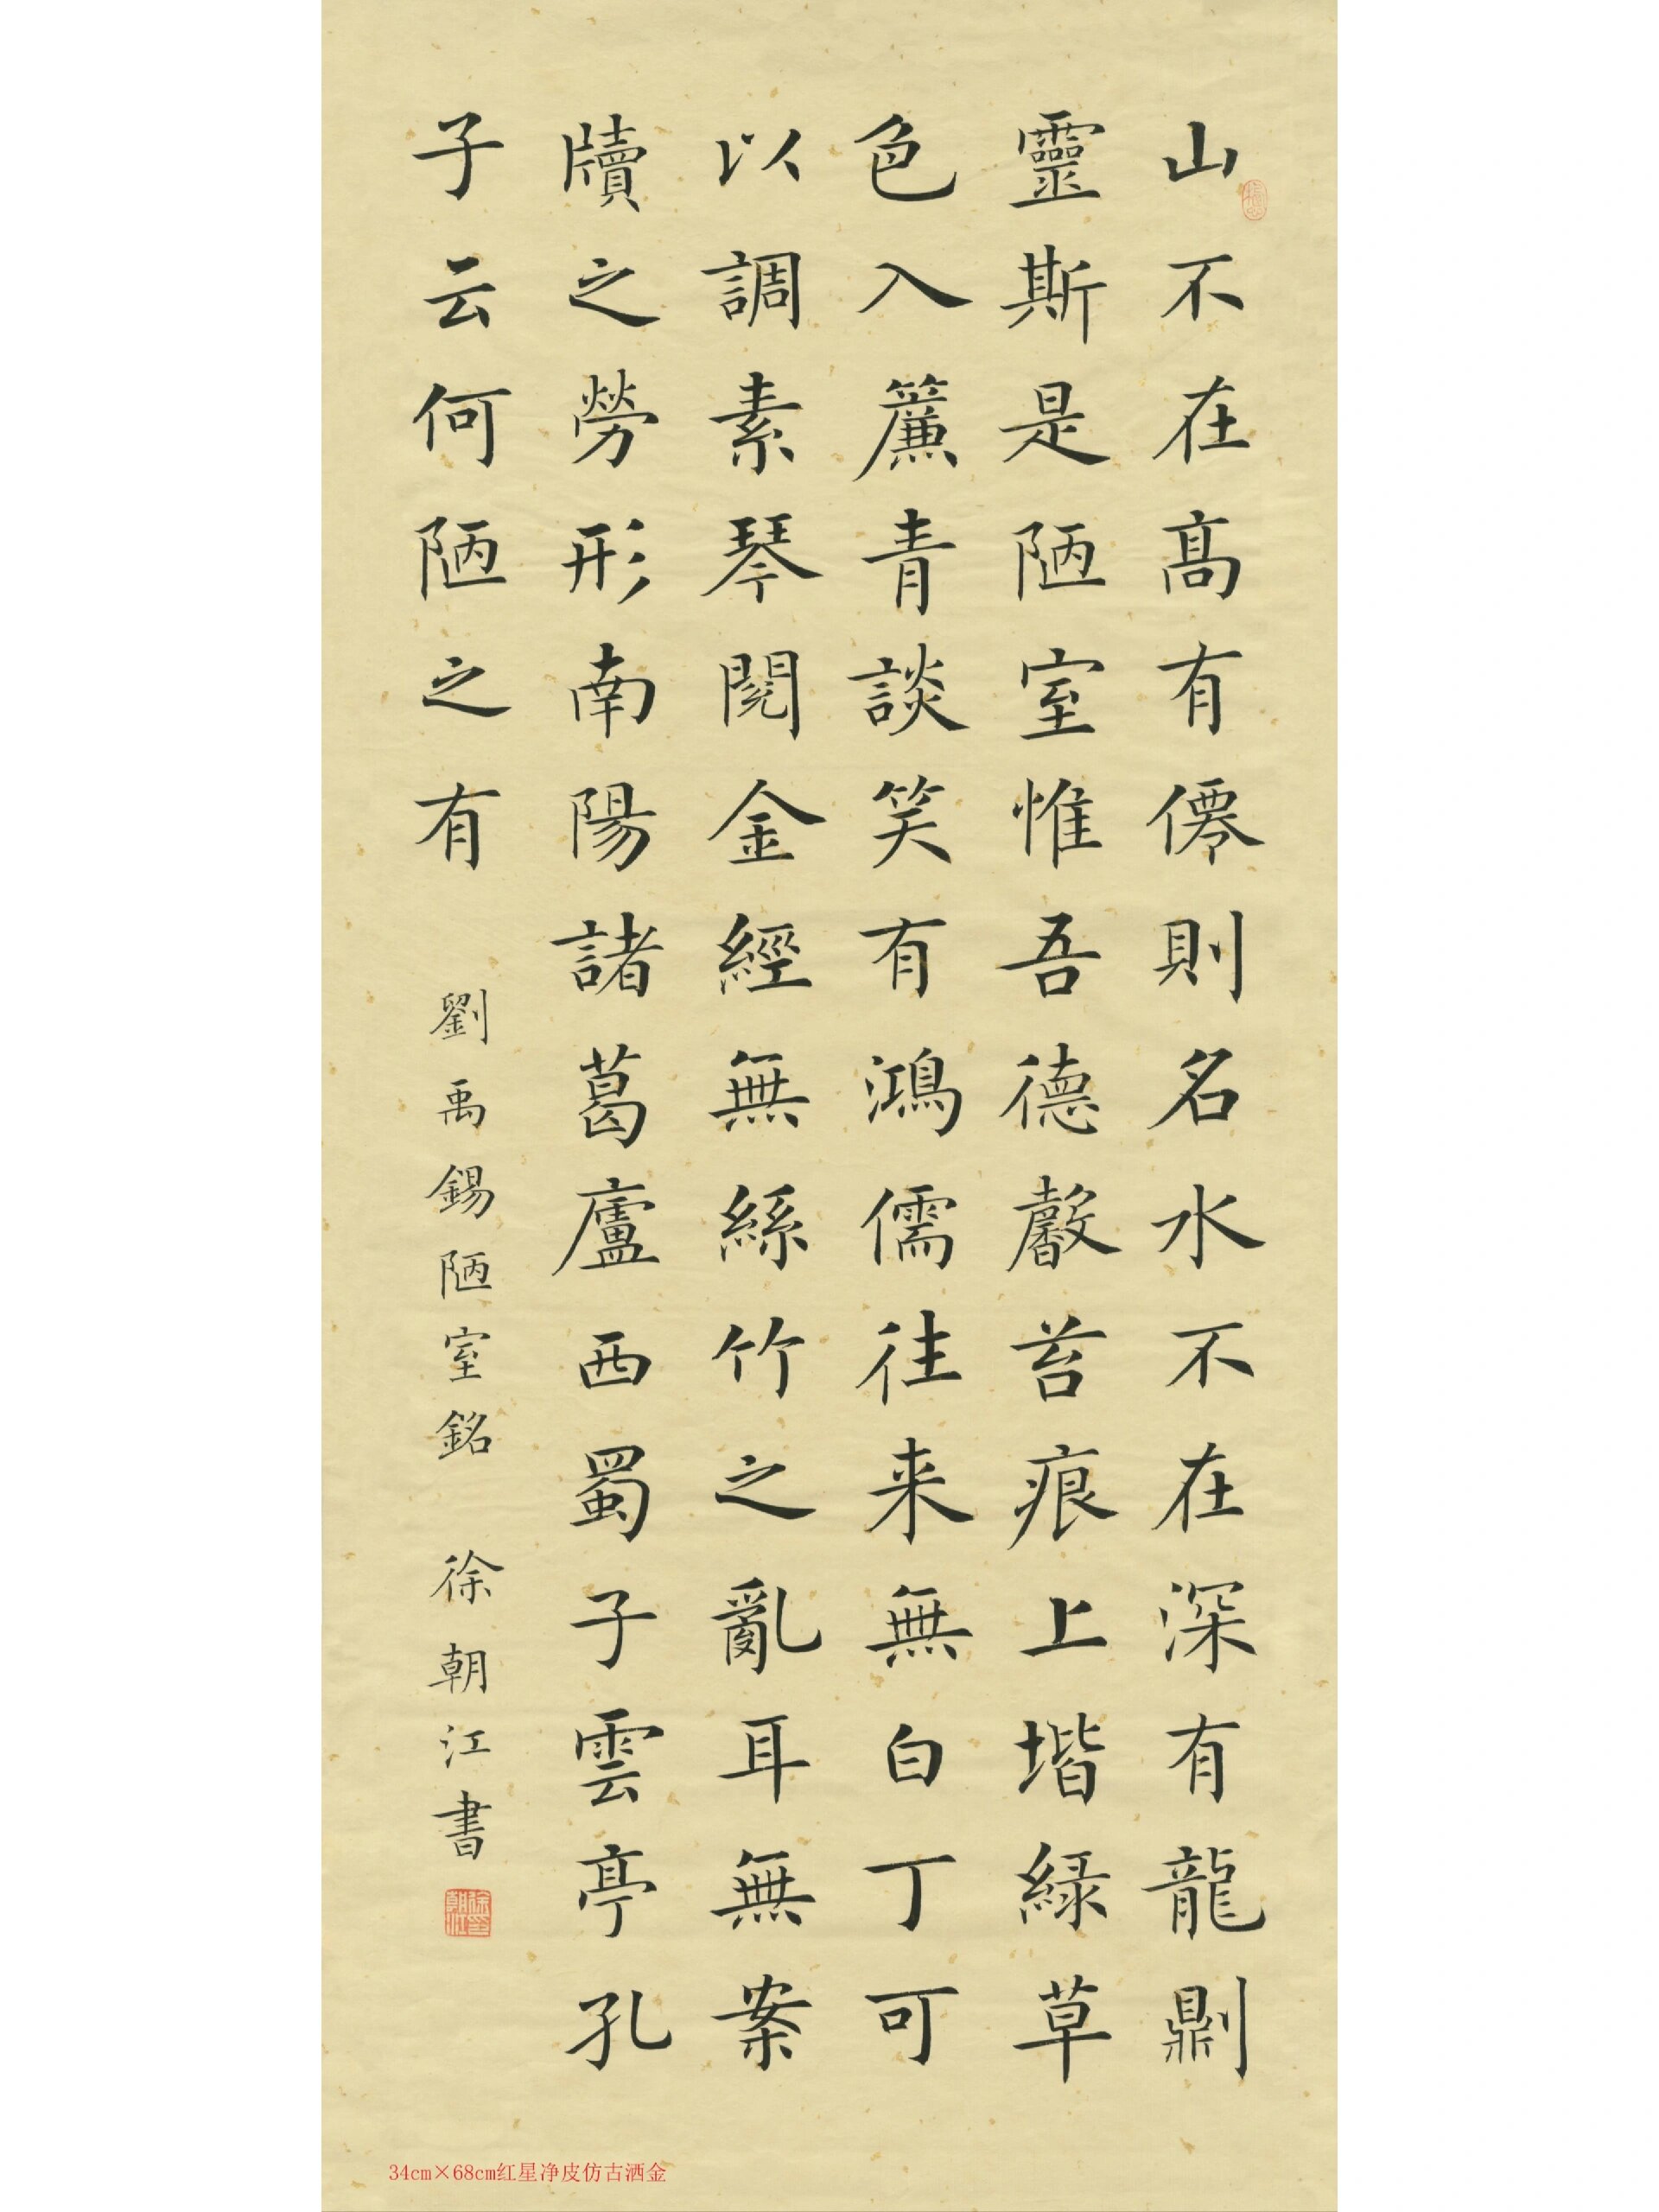 山不在高有僊則名水不在深有龍鼎刂
靈斯是陋室惟吾德馨苔痕上堦緑草
色入簾青談笑有鴻儒往来無白丁可
以調素琴閱金經無絲竹之亂耳無案
牘之勞形南陽諸葛廬西蜀子雲亭孔
子云何陋之有
劉禹錫陋室銘 徐朝江書
34cm×68cm红星净皮仿古洒金